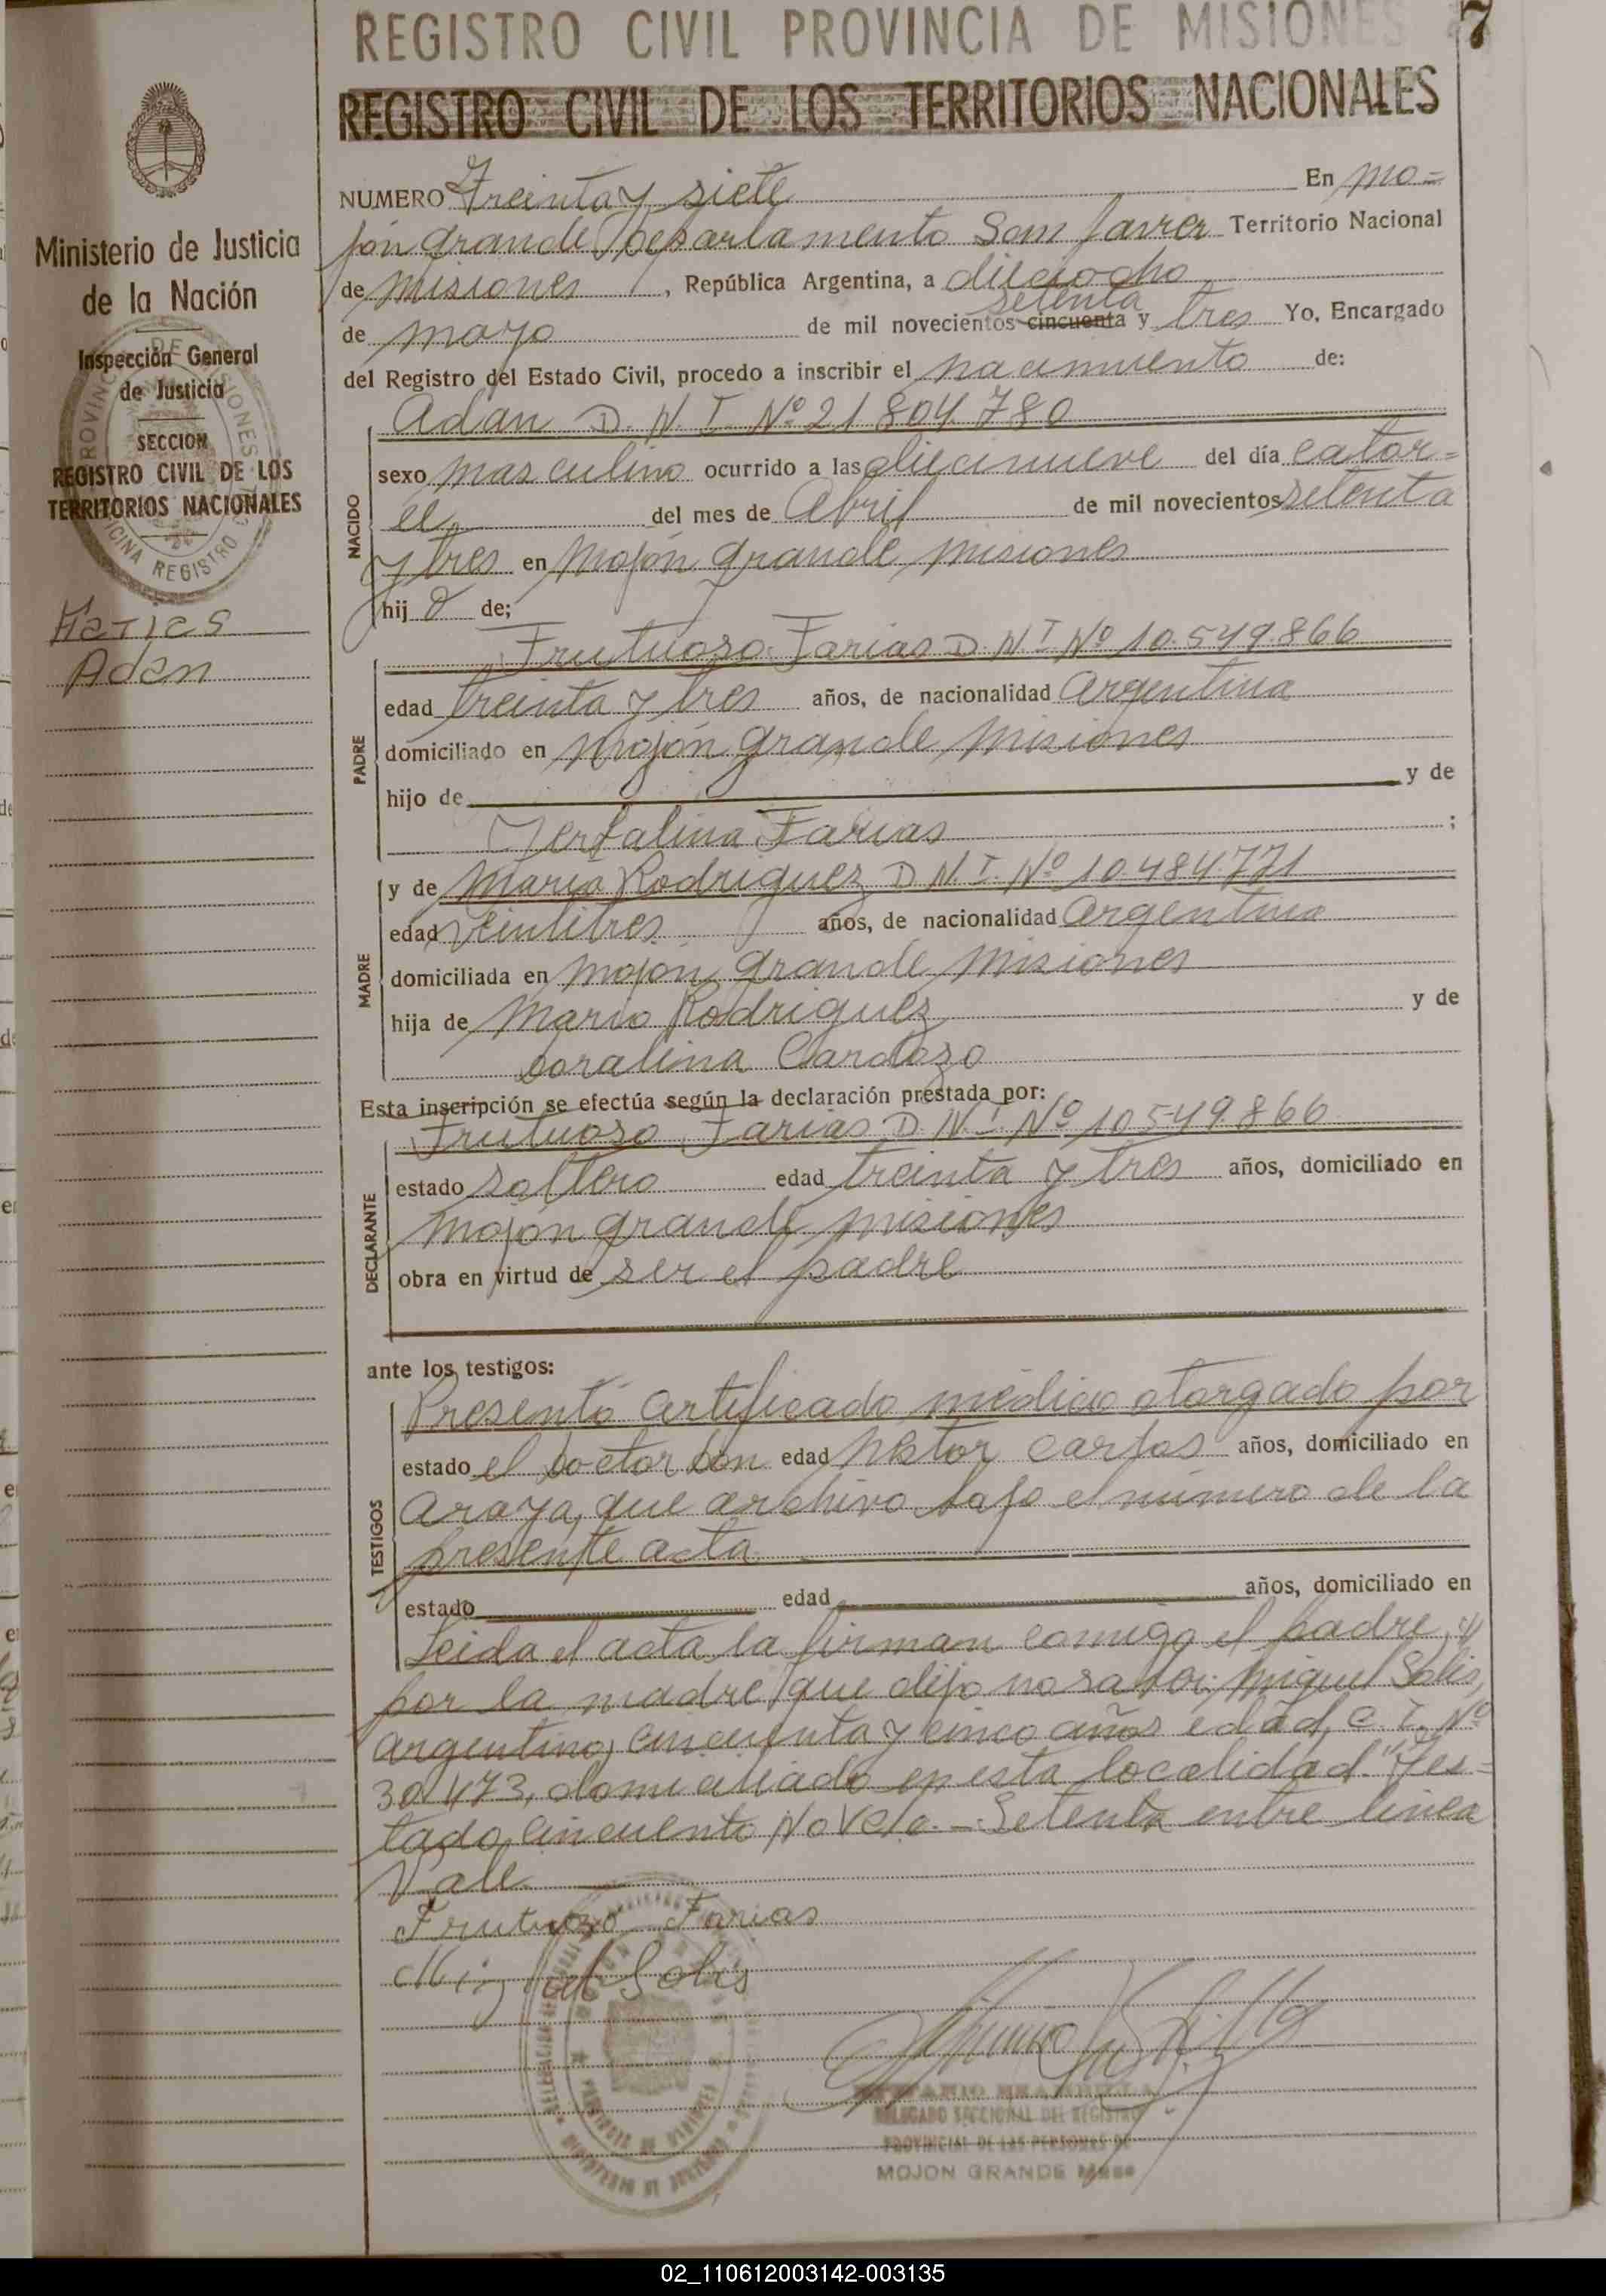 REGISTRO CIVIL PROVINCIA DE MISIONES
7
REGISTRO CIVIL DE LOS TERRITORIOS NACIONALES
Ministerio de Justicia
de la Nación
Inspección General
de Justicia
SECCION
REGISTRO CIVIL DE LOS
TERRITORIOS NACIONALES
Farias
Adan
NUMERO Treinta y siete En Mo=
jón grande Departamento San Javier Territorio Nacional
de Misiones, República Argentina, a dieciocho
setenta
de mayo de mil novecientos cincuenta y tres Yo, Encargado
del Registro del Estado Civil, procedo a inscribir el nacimiento de:
Adan D. N. I. Nº 21.804.780
NACIDO
sexo masculino ocurrido a las diecinueve del día cator=
ce del mes de Abril de mil novecientos setenta
y tres en Mojón grande, Misiones
hijo de;
PADRE
Frutuoso Farias D. N I Nº 10.549.866
edad treinta y tres años, de nacionalidad Argentina
domiciliado en Mojón grande Misiones
hijo de y de
Farias ;
MADRE
y de Maria Rodriguez D. N. I. Nº 10.484.771
edad veintitres años, de nacionalidad Argentina
domiciliada en Mojón grande Misiones
hija de Mario Rodriguez y de
Doralina Cardozo
Esta inscripción se efectúa según la declaración prestada por:
DECLARANTE
Frutuoso Farias D. N. I Nº 10.549.866
estado soltero edad treinta y tres años, domiciliado en
Mojón grande Misiones
obra en virtud de ser el padre
ante los testigos:
TESTIGOS
Presentó certificado médico otorgado por
estado el Doctor Don edad Néstor Carlos años, domiciliado en
Araya, que archivo bajo el número de la
presente acta
estado edad años, domiciliado en
Leida el acta la firman conmigo el padre, y
por la madre que dijo no saber: Miguel Solis,
argentino, cincuenta y cinco años edad, C. I. Nº
30.473, domiciliado en esta localidad. "Tes=
tado, cincuenta No Vale. - Setenta entre linea
Vale
Frutuozo Farias
Miguel Solis
DELEGADO SECCIONAL DEL REGISTRO
PROVINCIAL DE LAS PERSONAS DE
MOJON GRANDE Mnes
02_110612003142-003135